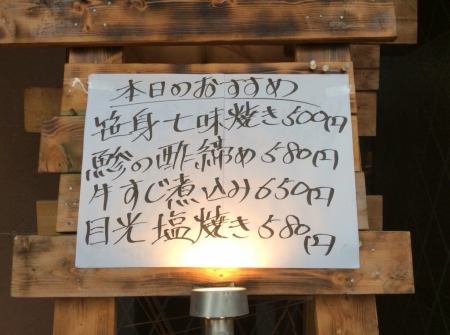 本日のおすすめ
笹身七味焼き500円
鯵の酢締め580円
牛すじ煮込み650円
目光塩焼き580円